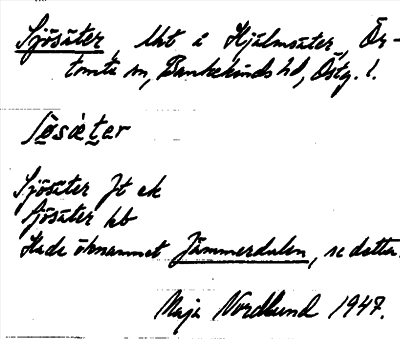 Sjösäter, lht å Hjälmsäter, Ör-
tomta sn, Bankekinds hd, Östg. l.
Sjösäter Jt ek
Sjösäter hb
Hade öknamnet Jämmerdalen, se detta.
Maja Nordlund 1947.